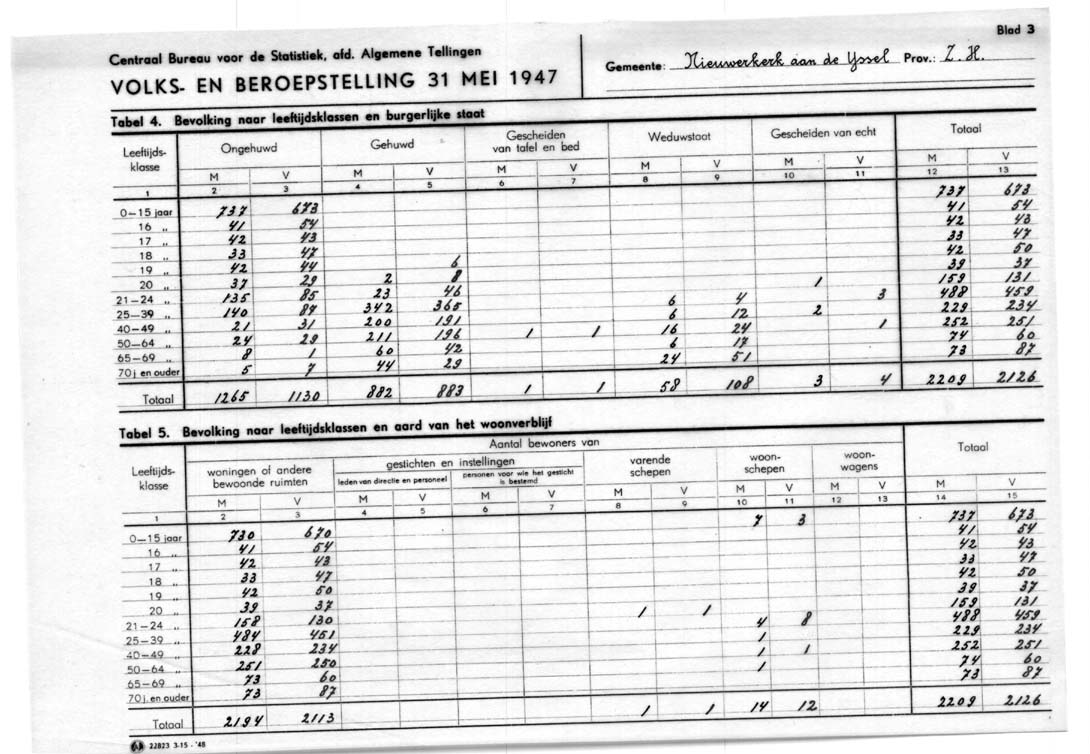 Blad 3
Centraal Bureau voor de Statistiek, afd. Algemene Tellingen
VOLKS- EN BEROEPSTELLING 31 MEI 1947
Gemeente: Nieuwerkerk aan de Yssel Prov.: Z. H.
Tabel 4. Bevolking naar leeftijdsklassen en burgerlijke staat
Leeftijds-klasse Ongehuwd Gehuwd Gescheiden van tafel en bed Weduwstaat Gescheiden van echt Totaal
M V M V M V M V M V M V
1 2 3 4 5 6 7 8 9 10 11 12 13
0-15 jaar 737 673 737 673
16 „ 41 54 41 54
17 „ 42 43 42 43
18 „ 33 47 33 47
19 „ 42 44 6 42 50
20 „ 37 29 2 8 39 37
21-24 „ 135 85 23 46 1 159 131
25-39 „ 140 87 342 365 6 4 3 488 459
40-49 „ 21 31 200 191 6 12 2 229 234
50-64 „ 24 29 211 196 1 1 16 24 1 252 251
65-69 „ 8 1 60 42 6 17 74 60
70 j en ouder 5 7 44 29 24 51 73 87
Totaal 1265 1130 882 883 1 1 58 108 3 4 2209 2126
Tabel 5. Bevolking naar leeftijdsklassen en aard van het woonverblijf
Leeftijds-klasse Aantal bewoners van Totaal
woningen of andere bewoonde ruimten gestichten en instellingen varende schepen woon-schepen woon-wagens
leden van directie en personeel personen voor wie het gesticht is bestemd
M V M V M V M V M V M V M V
1 2 3 4 5 6 7 8 9 10 11 12 13 14 15
0-15 jaar 730 670 7 3 737 673
16 „ 41 54 41 54
17 „ 42 43 42 43
18 „ 33 47 33 47
19 „ 42 50 42 50
20 „ 39 37 39 37
21-24 „ 158 130 1 1 159 131
25-39 „ 484 451 4 8 488 459
40-49 „ 228 234 1 229 234
50-64 „ 251 250 1 1 252 251
65-69 „ 73 60 1 74 60
70 j. en ouder 73 87 73 87
Totaal 2194 2113 1 1 14 12 2209 2126
22823 3-15 - '48